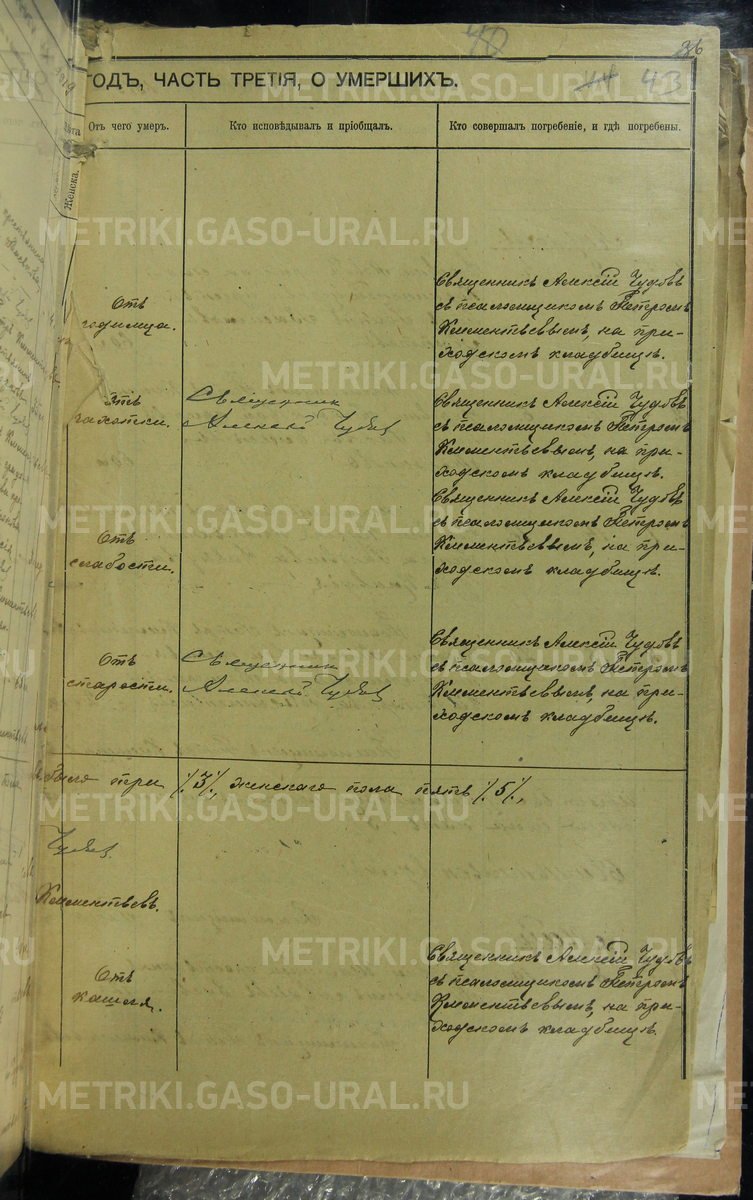 40
36
ГОДЪ, ЧАСТЬ ТРЕТІЯ, О УМЕРШИХЪ.
43
Отъ чего умеръ.
Кто исповѣдывалъ и пріобщалъ.
Кто совершалъ погребеніе, и гдѣ погребены.
Женска.
METRIKI.GASO-URAL.RU
Отъ
родимца.
Священникъ Алексій Чудовъ
съ псаломщикомъ Петромъ
Клементьевымъ, на при-
ходскомъ кладбищѣ.
Отъ
чахотки.
Священник
Алексѣй Чудов
Священникъ Алексій Чудовъ
съ псаломщикомъ Петромъ
Клементьевымъ, на при-
ходскомъ кладбищѣ.
Отъ
слабости.
Священникъ Алексій Чудовъ
съ псаломщикомъ Петромъ
Клементьевымъ, на при-
ходскомъ кладбищѣ.
Отъ
старости.
Священник
Алексѣй Чудов
Священникъ Алексій Чудовъ
съ псаломщикомъ Петромъ
Клементьевымъ, на при-
ходскомъ кладбищѣ.
было три /.3/., женскаго пола пять /.5/.,
Чудов
Клементьевъ.
Отъ
кашля.
Священникъ Алексій Чудовъ
съ псаломщикомъ Петромъ
Клементьевымъ, на при-
ходскомъ кладбищѣ.